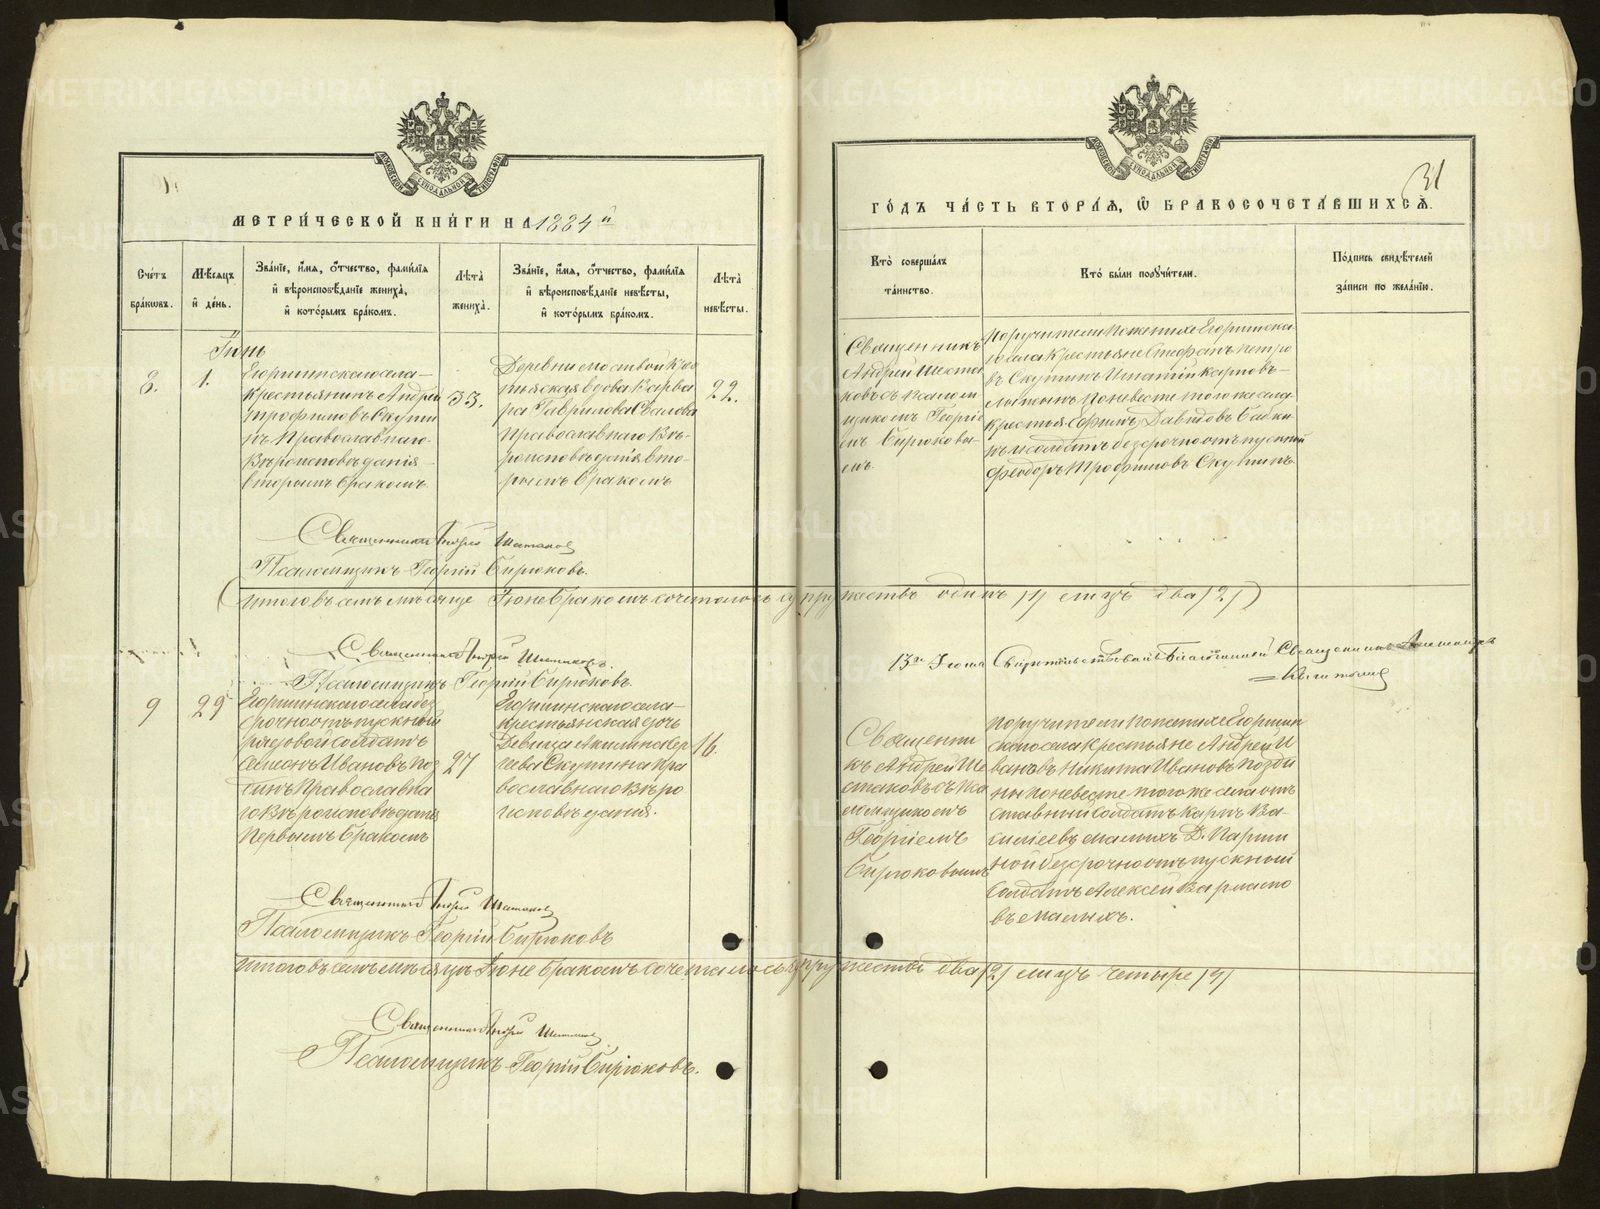 31
МЕТРИЧЕСКОЙ КНИГИ НА 1884й
ГОДЪ ЧАСТЬ ВТОРАЯ, Ѡ БРАКОСОЧЕТАВШИХСЯ.
Счетъ браковъ.
Мѣсяцъ и день.
Званіе, имя, отчество, фамилія и вѣроисповѣданіе жениха, и которымъ бракомъ.
Лѣта жениха.
Званіе, имя, отчество, фамилія и вѣроисповѣданіе невѣсты, и которымъ бракомъ.
Лѣта невѣсты.
Кто совершалъ таинство.
Кто были поручители.
Подпись свидѣтелей записи по желанію.
Іюнь
8.
1.
Егоршинскаго села
крестьянинъ Андрей
Трофимовъ Скути
нъ Православнаго
Вѣроисповѣданія
вторымъ бракомъ
33.
Деревни
вдова Варва
ра Гаврилова
Православнаго Вѣ-
роисповѣданія вто-
рымъ бракомъ
22.
Священникъ
Андрей Шеста
ковъ съ псалом
щикомъ Георгіе
мъ Бирюковы
мъ
Поручители по женихе Егоршинска
го села крестьяне Стефанъ Петро
въ Скутинъ Игнатій Карповъ
по невесте того же села
крестья. Ефимъ Давидовъ
солдатъ безсрочноотпускной
Феодоръ Трофимовъ Скутинъ
Священникъ Андрей Шестаковъ
Псаломщикъ Георгій Бирюковъ.
Итого въ семъ месяце Іюне бракомъ сочеталось супружествъ одинъ /1/ лицъ два /2/
Священникъ Андрей Шестаковъ.
Псаломщикъ Георгій Бирюковъ.
13го Іюня Свидѣтельствовалъ Благочинный Священникъ Александръ
9
29
Егоршинскаго села без
срочноотпускный
рядовой солдатъ
Семенъ Ивановъ Поз
динъ Православна
го Вѣроисповѣданія
Первымъ бракомъ
27
Егоршинскаго села
крестьянская дочь
Девица Акилина Сер
геева Скутина Пра
вославнаго Вѣро
исповѣданія.
16.
Священни
къ Андрей Ше
стаковъ съ Пса
ломщикомъ
Георгіемъ
Бирюковымъ
Поручители по женихе Егоршин
скаго села крестьяне Андрей И
вановъ Никита Ивановъ Позди
ны по невесте того же села от
ставный солдатъ Карпъ Ва
сильевъ Малыхъ Д. Парши
ной безсрочноотпускный
солдатъ Алексей Варламо
въ Малыхъ.
Священникъ Андрей Шестаковъ
Псаломщикъ Георгій Бирюковъ
Итого въ семъ месяце Іюне бракомъ сочеталось супружествъ два /2/ лицъ четыре /4/
Священникъ Андрей Шестаковъ
Псаломщикъ Георгій Бирюковъ.